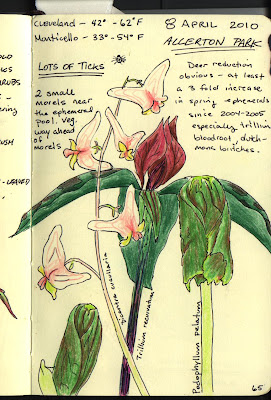 CLEVELAND - 42° - 62°F
Monticello - 33° - 54° F
8 APRIL 2010
ALLERTON PARK
LOTS OF TICKS
2 small
morels near
the ephemeral
pool. Veg.
way ahead
of
morels
Deer reduction
obvious - at least
a 3 fold increase
in spring ephemerals
since 2004-2005
especially trillium,
bloodroot, dutch-
mans britches.
Dicentra cucullaria
Trillium recurvatum
Podophyllum peltatum
65